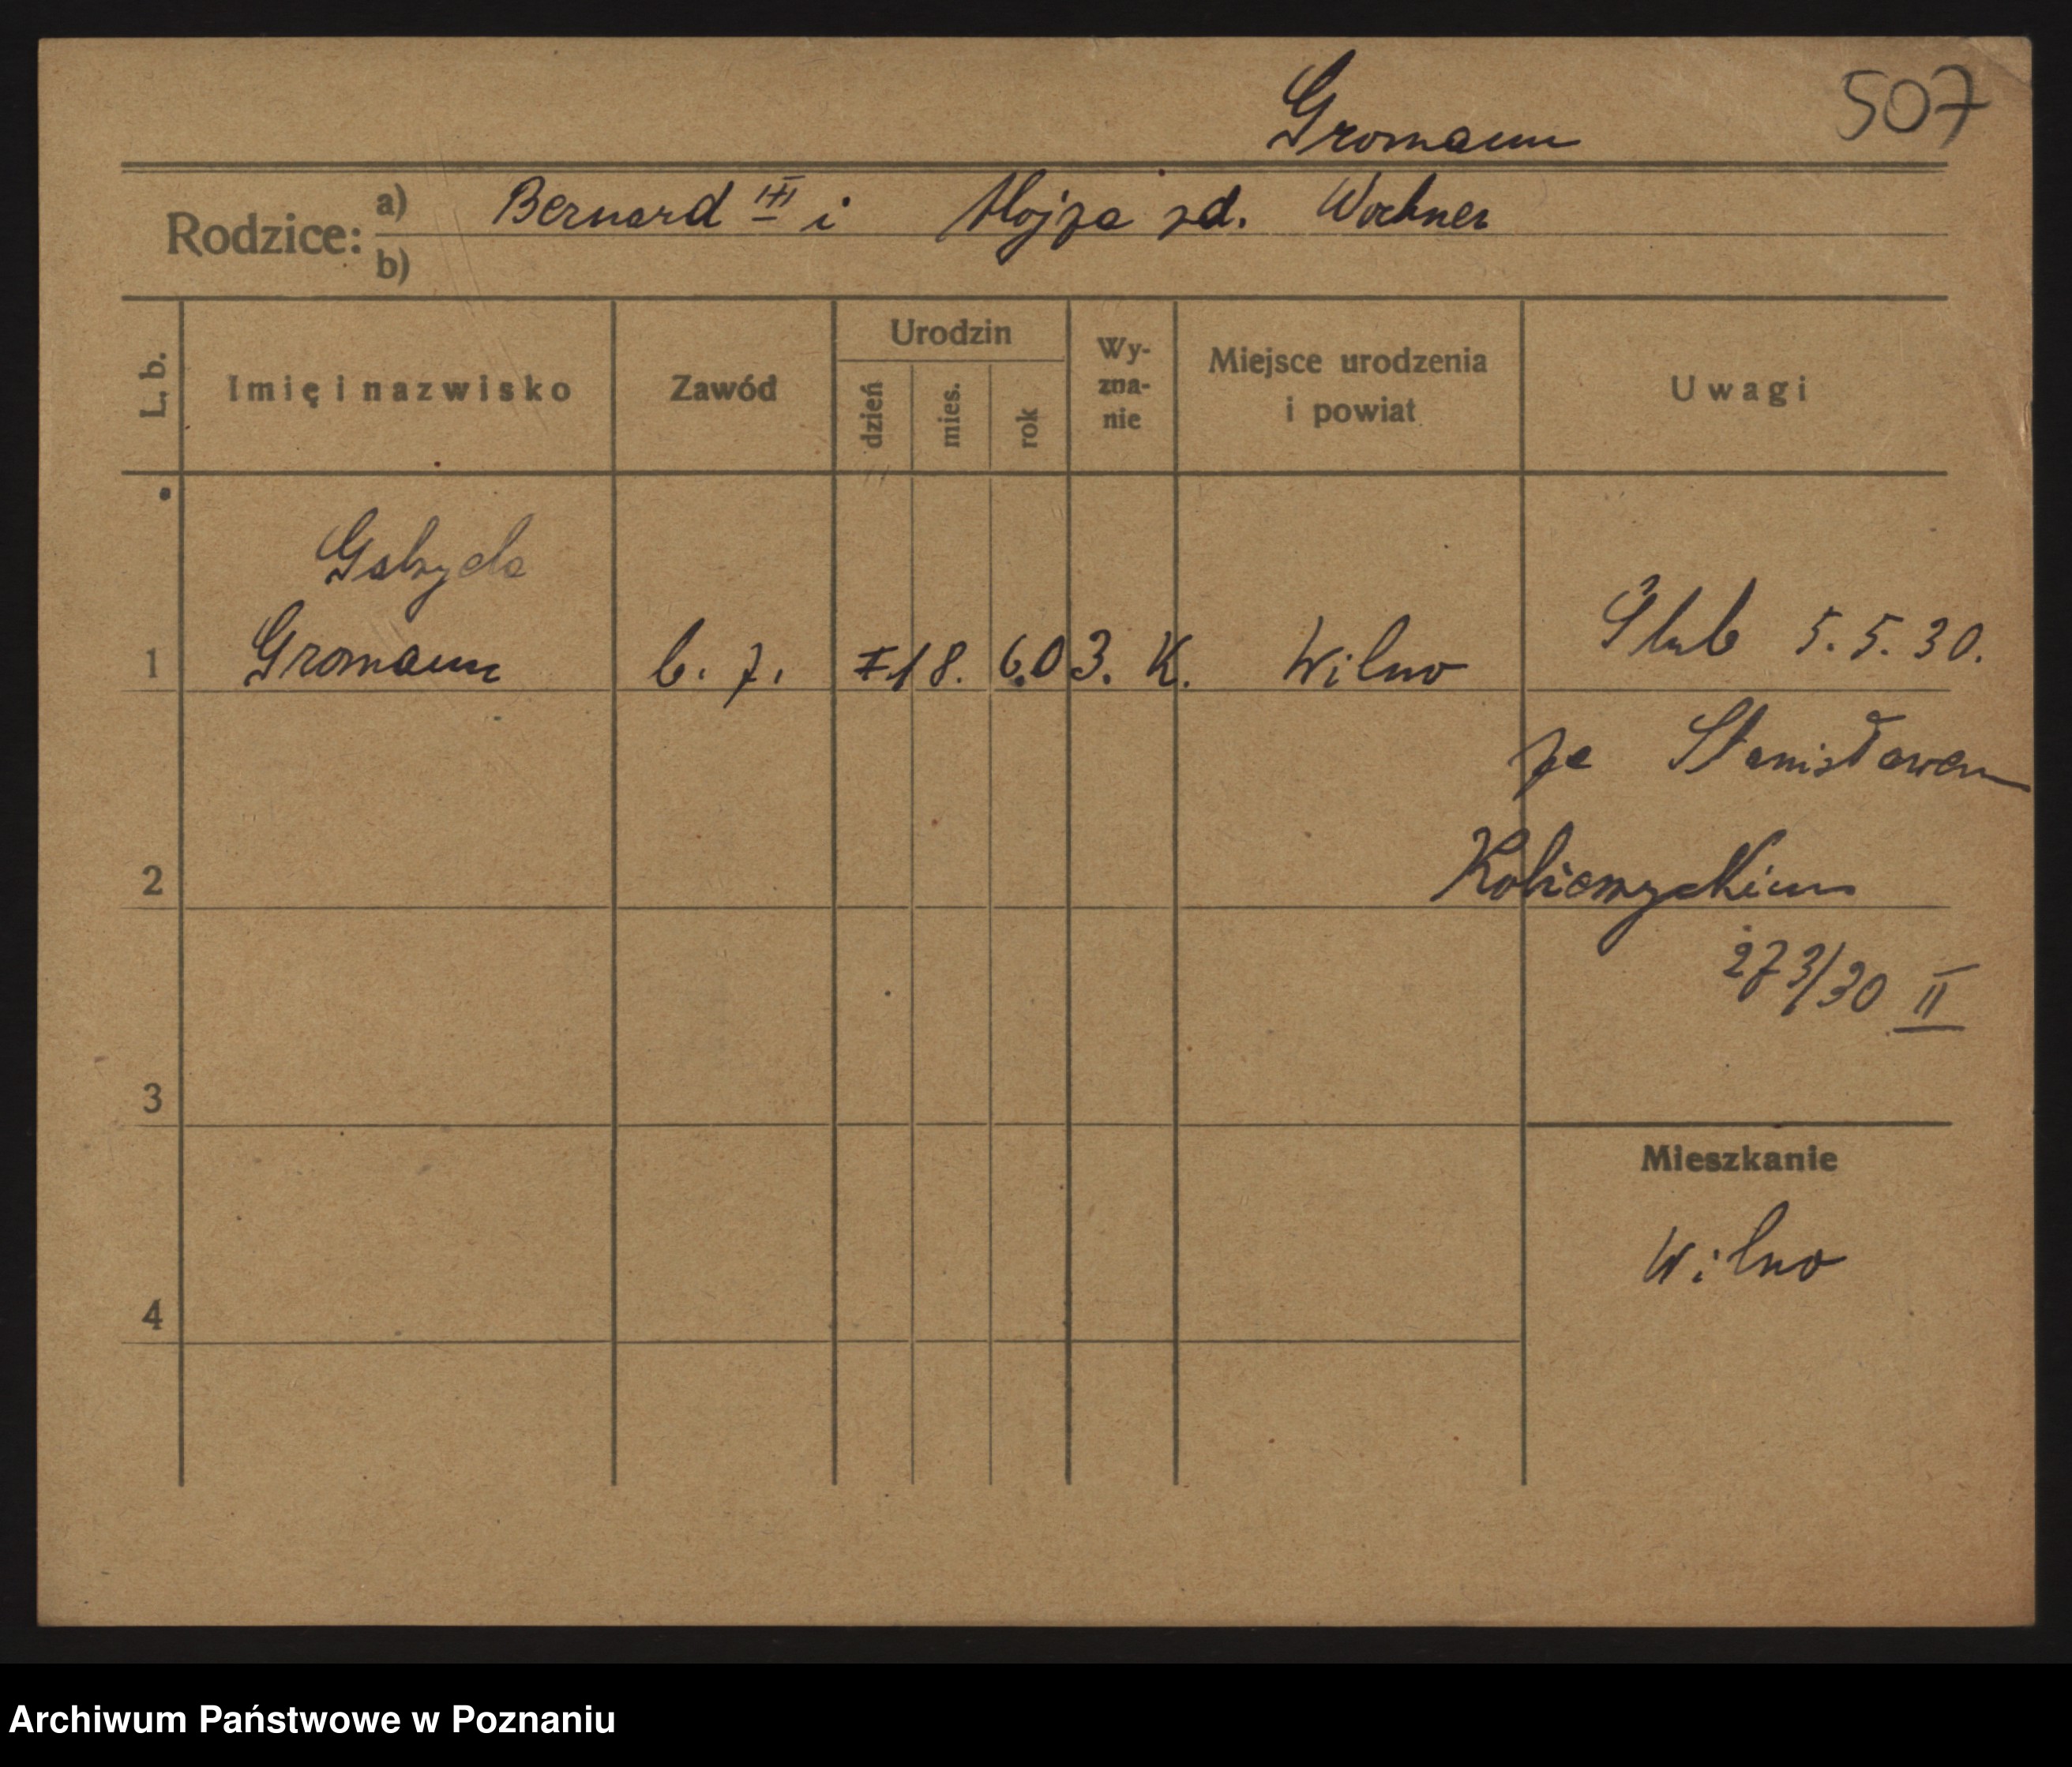 507
Gromann
Rodzice: a) Bernard III i Alojza zd. Wochner
b)
L. b. Imię i nazwisko Zawód Urodzin dzień mies. rok Wy-zna-nie Miejsce urodzenia i powiat Uwagi
Gabryela
1 Gromann b. z. 18. 6. 03. K. Wilno Ślub 5. 5. 30.
ze Stanisławem
2
273/30 II
3
Mieszkanie
Wilno
4
Archiwum Państwowe w Poznaniu